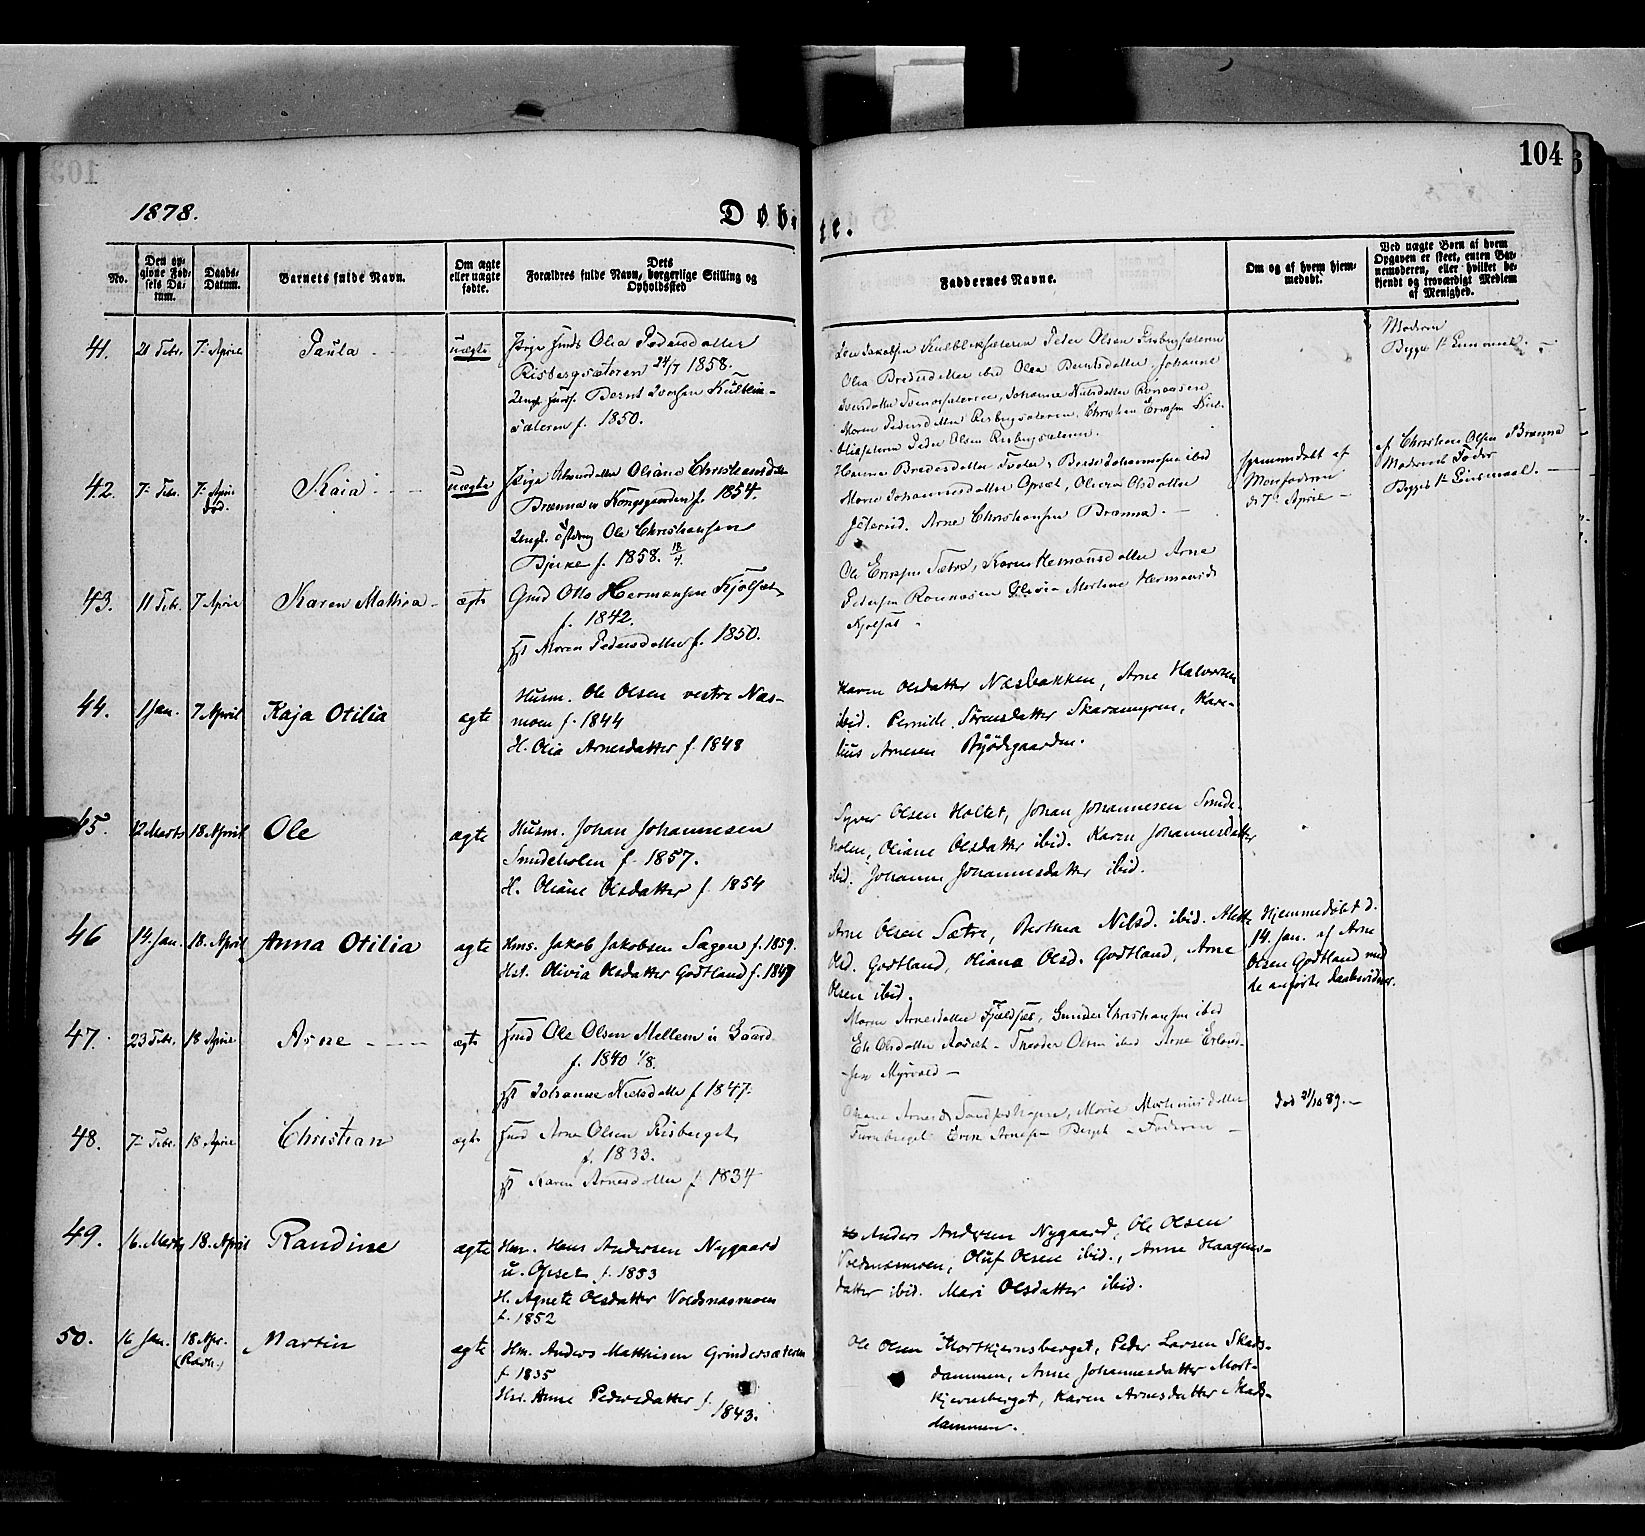 104
1878.
Døbte.
No.
Den opgivne Fødsels Datum.
Daabs-Datum.
Barnets fulde Navn.
Om ægte eller uægte fødte.
Dets Forældres fulde Navn, borgerlige Stilling og Opholdssted
Faddernes Navne.
Om og af hvem hjemmedøbt.
Ved uægte Børn af hvem Opgaven er skeet, enten Barnemoderen, eller hvilket bekjendt og troværdigt Medlem af Menighed.
41. 21 Febr. 7 April Paula uægte
Pige Olia Pedersdatter
Risbergsæteren 24/7 1858.
Ungk. Bernt Iversen
sæteren f. 1850.
Peder Olsen Risbergsæteren
Olia ibid Olea Berntsdatter, Johanne
Johanne Nilsdatter Rønaasen
Maren Pedersdatter Risbergsæteren, Christian Eriksen
Peder Olsen Risbergsæteren.
Moderen
42. 7 Febr. 7 April død. Kaia uægte
Pige Oliane Christiansdatter
Brænna u Kongsgaarden f. 1854.
Ungk. Ole Christiansen
Bjerke f. 1858. 18/4
Hanna Bredesdatter ibid
Maren Johannesdatter Opsæt, Olsdatter
Arne Christiansen Brænna.
hjemmedøbt af
Morfaderen
d 7 April
af Christian Olsen Brænna
Moderens Fader
43. 11 Febr. 7 April Karen Mathea ægte
Gmd Otto Hermansen Kjølsæt
f. 1842.
H Maren Pedersdatter f. 1850.
Ole Eriksen Sætre, Karen Hermansdatter Arne
Pedersen Rønaasen Olivia Martene Hermansd
Kjølsæt
44. 1 Jan. 7 April Kaja Otilia ægte
Husm. Ole Olsen vestre Næs-
moen f. 1844
H. Olia Arnesdatter f. 1848
Karen Olsdatter Næsbakken, Arne Halvorsen
ibid. Pernille Sørensdatter Skaramyren, Kare-
lius Arnesen Bjødsgaarden.
45. 12 Marts 18 April Ole ægte
Husm. Johan Johannesen
Smideholen f. 1857.
H. Oliane Olsdatter f. 1854
Syver Olsen Holtet, Johan Johannesen Smide-
holen, Oliane Olsdatter ibid. Karen Johannesdatter
ibid. Johanne Johannesdatter ibid.
46 14. Jan. 18. April Anna Otilia ægte
Hms. Jakob Jakobsen Sagen f. 1859.
Hst. Olivia Olsdatter Godtland f. 1849
Arne Olsen Sætre, Berthea Nilsd. ibid. Mette
Olsd. Godtland, Oliana Olsd. Godtland, Arne
Olsen ibid.
Hjemmedøbt d.
14. Jan. af Arne
Olsen Godtland med
de anførte Daabsvidner.
47. 23 Febr. 18 April Arne ægte
Gmd Ole Olsen Mellem u Gaard
f. 1840 1/8.
H Johanne Nielsdatter f 1847.
Maren Arnesdatter Fjeldsæt, Gunder Christiansen ibid
Eli Olsdatter Theodor Olsen ibid Arne Erland-
sen Myrvold
48. 7 Febr. 18 April Christian ægte
Gmd Arne Olsen Risberget
f. 1833.
H Karen Arnesdatter f 1834
Arnesd. Marie Martinusdatter
Furuberget Even Arnesen Berget Faderen
død 21/10 89.
49. 16. Marts 18. April Randine ægte
Hm. Hans Andersen Nygaard
u. Opset f. 1853
H. Agnete Olsdatter Voldsnæsmoen
f. 1852
Anders Andersen Nygaard, Ole Olsen
Voldsnæsmoen, Oluf Olsen ibid., Anne Haagens-
datter ibid. Mari Olsdatter ibid.
50. 16 Jan. 18 Apr. (Rævh.) Martin ægte
Hm. Anders Matthisen Grindersæteren
f. 1835
Hst. Anne Pedersdatter f. 1843.
Ole Olsen Mortkjernsberget, Peder Larsen Skads-
dammen, Anne Johannesdatter Mort-
kjernsberget, Karen Arnesdatter Skads-
dammen.